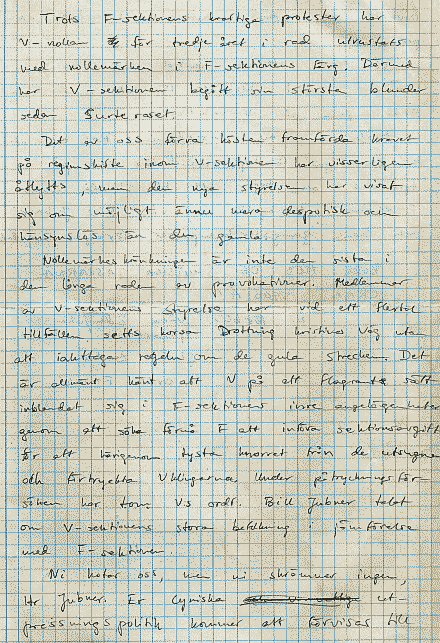 Trots F-sektionens kraftiga protester har
V-nollan för tredje året i rad utrustats
med nollemärken i F-sektionens färg. Därmed
har V-sektionen begått sin största blunder
sedan Surteraset.
Det av oss förra hösten framförda kravet
på regimskifte inom V-sektionen har visserligen
åtlytts, men den nya styrelsen har visat
sig om möjligt ännu mera despotisk och
hänsynslös än den gamla.
Nollemärkeskränkningen är inte den sista i
den långa raden av provokationer. Medlemmar
av V-sektionens styrelse har vid ett flertal
tillfällen setts korsa Drottning Kristinas väg utan
att iakttaga regeln om de gula strecken. Det
är allmänt känt att V på ett flagrant sätt
inblandat sig i F-sektionens inre angelägenheter
genom att söka förmå F att införa sektionsavgift
för att härigenom tysta knorret från de utsugna
och förtryckta V-lingarna. Under påtryckningsför-
söken har tom. V:s ordf. Bill Jubner talat
om V-sektionens stora befolkning i jämförelse
med F-sektionen.
Ni hotar oss, men ni skrämmer ingen,
Hr Jubner. Er cyniska ut-
pressningspolitik kommer att förvisas till